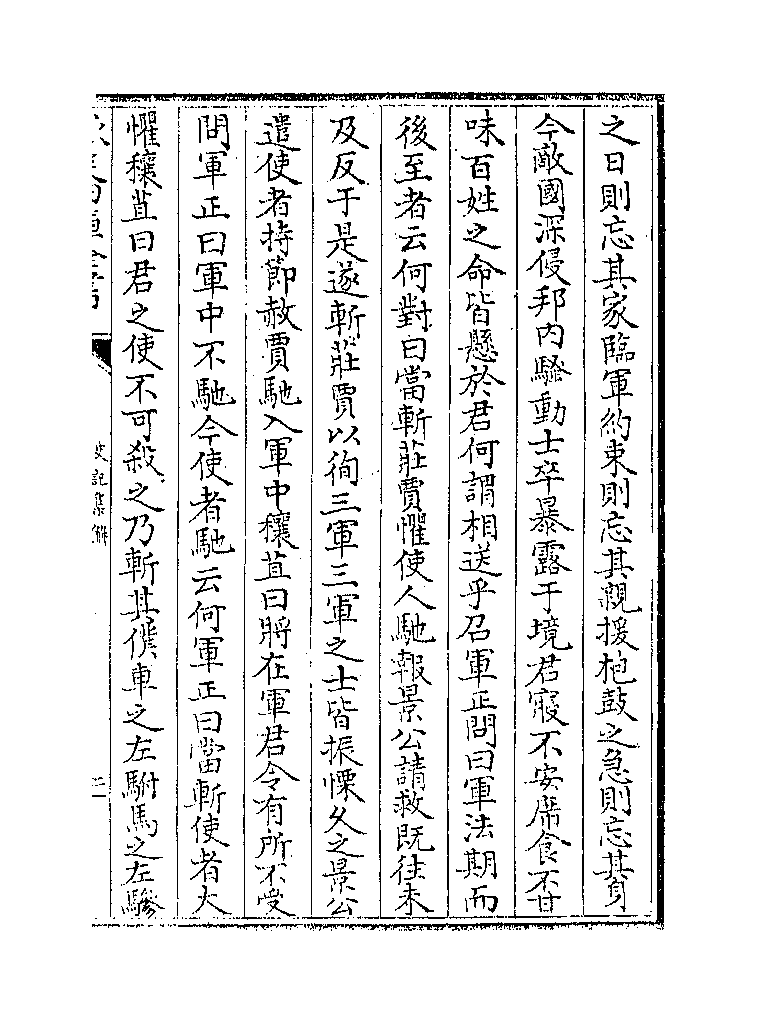 之日則忘其家臨軍約束則忘其親援枹鼓之急則忘其身
今敵國深侵邦内騷動士卒暴露于境君寢不安席食不甘
味百姓之命皆懸於君何謂相送乎召軍正問曰軍法期而
後至者云何對曰當斬莊賈懼使人馳報景公請救既往未
及反于是遂斬莊賈以徇三軍三軍之士皆振慄久之景公
遣使者持節赦賈馳入軍中穰苴曰將在軍君令有所不受
問軍正曰軍中不馳今使者馳云何軍正曰當斬使者大
懼穰苴曰君之使不可殺之乃斬其僕車之左駙馬之左驂
史記集解